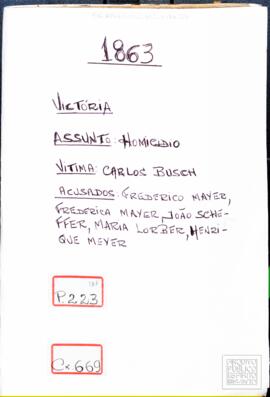 1863
VICTÓRIA
ASSUNTO: HOMICIDIO
VITIMA: CARLOS BUSCH
ACUSADOS: FREDERICO MAYER,
FREDERICA MAYER, JOÃO SCHE-
FFER, MARIA LORBER, HENRI-
QUE MEYER
P.223
Cx.669
ARQUIVO
PÚBLICO